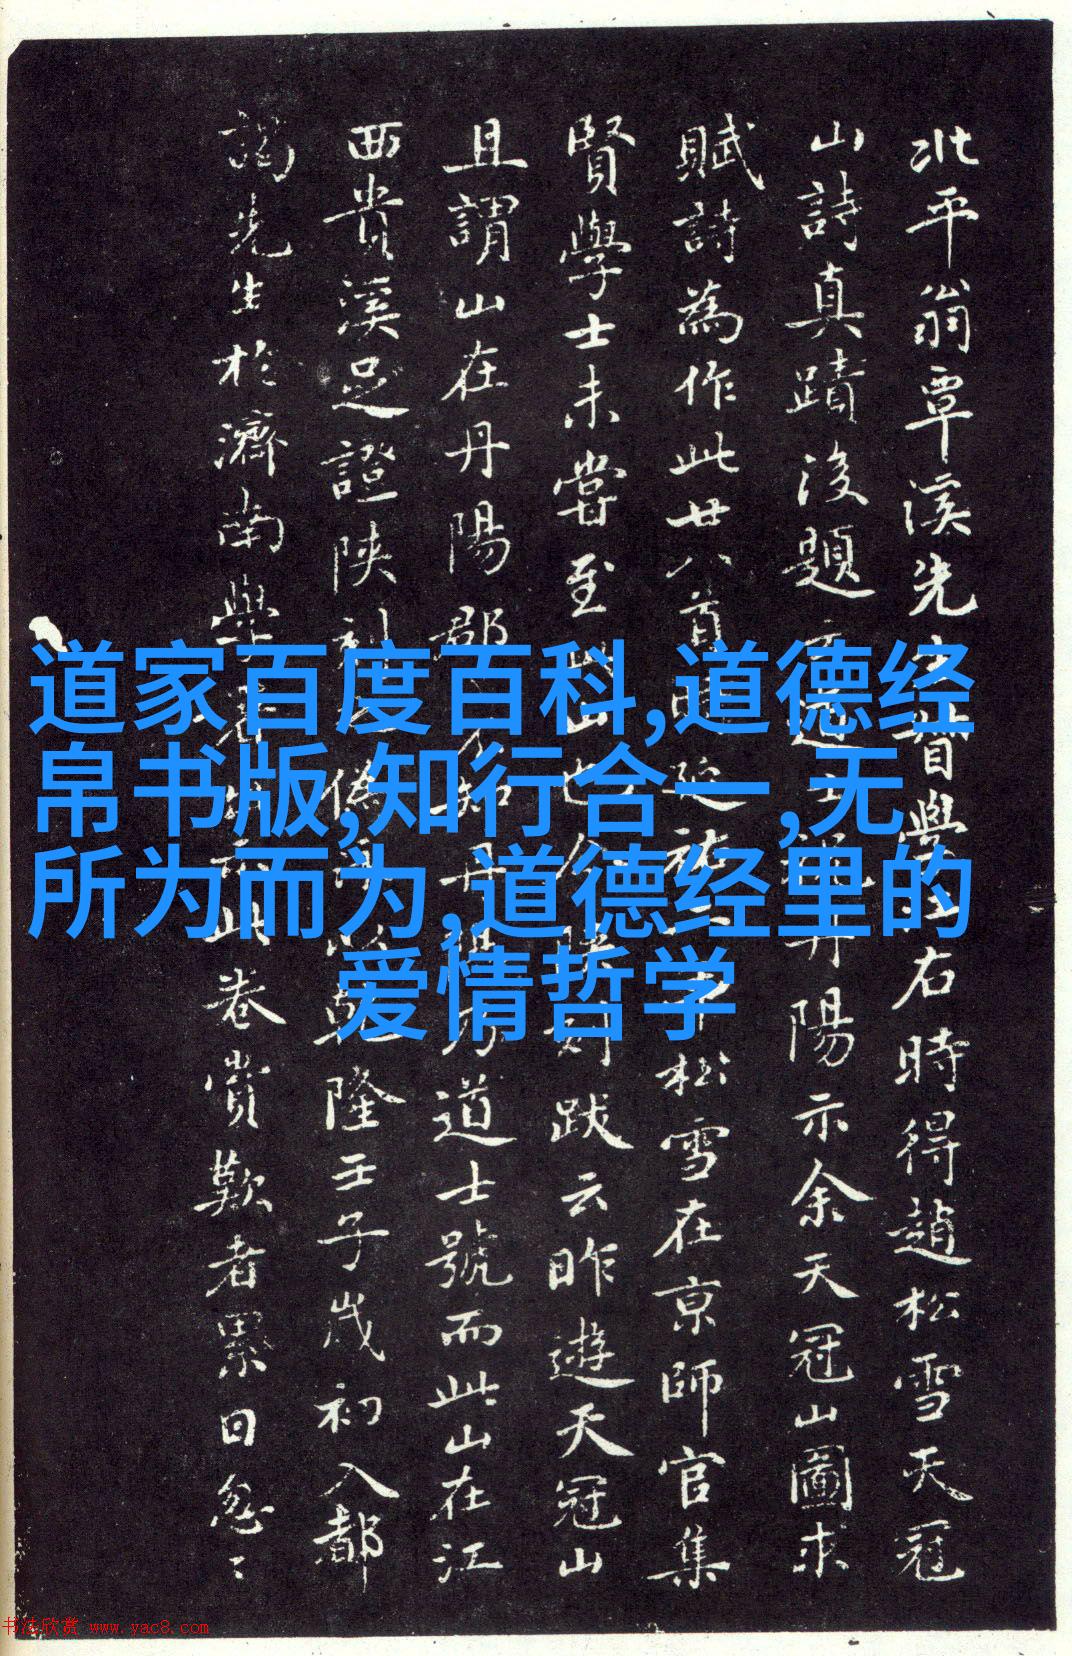 北平翁覃溪先生督學山左時得趙松雪天冠
山詩真蹟後題 道士 丹陽示余天冠山圖求
賦詩為作此廿八首 延祐 松雪在京師官集
賢學士未嘗至此山也 跋云昨遊天冠山
且謂山在丹陽郡 道士號而此山在江
西貴溪足證陝刻 偽 乾隆壬子歲初入都
謁先生於濟南學 此卷賞歎者累日忽〻
道家百度百科,道德经
帛书版,知行合一,无
所为而为,道德经里的
爱情哲学
书法欣赏 www.yac8.com